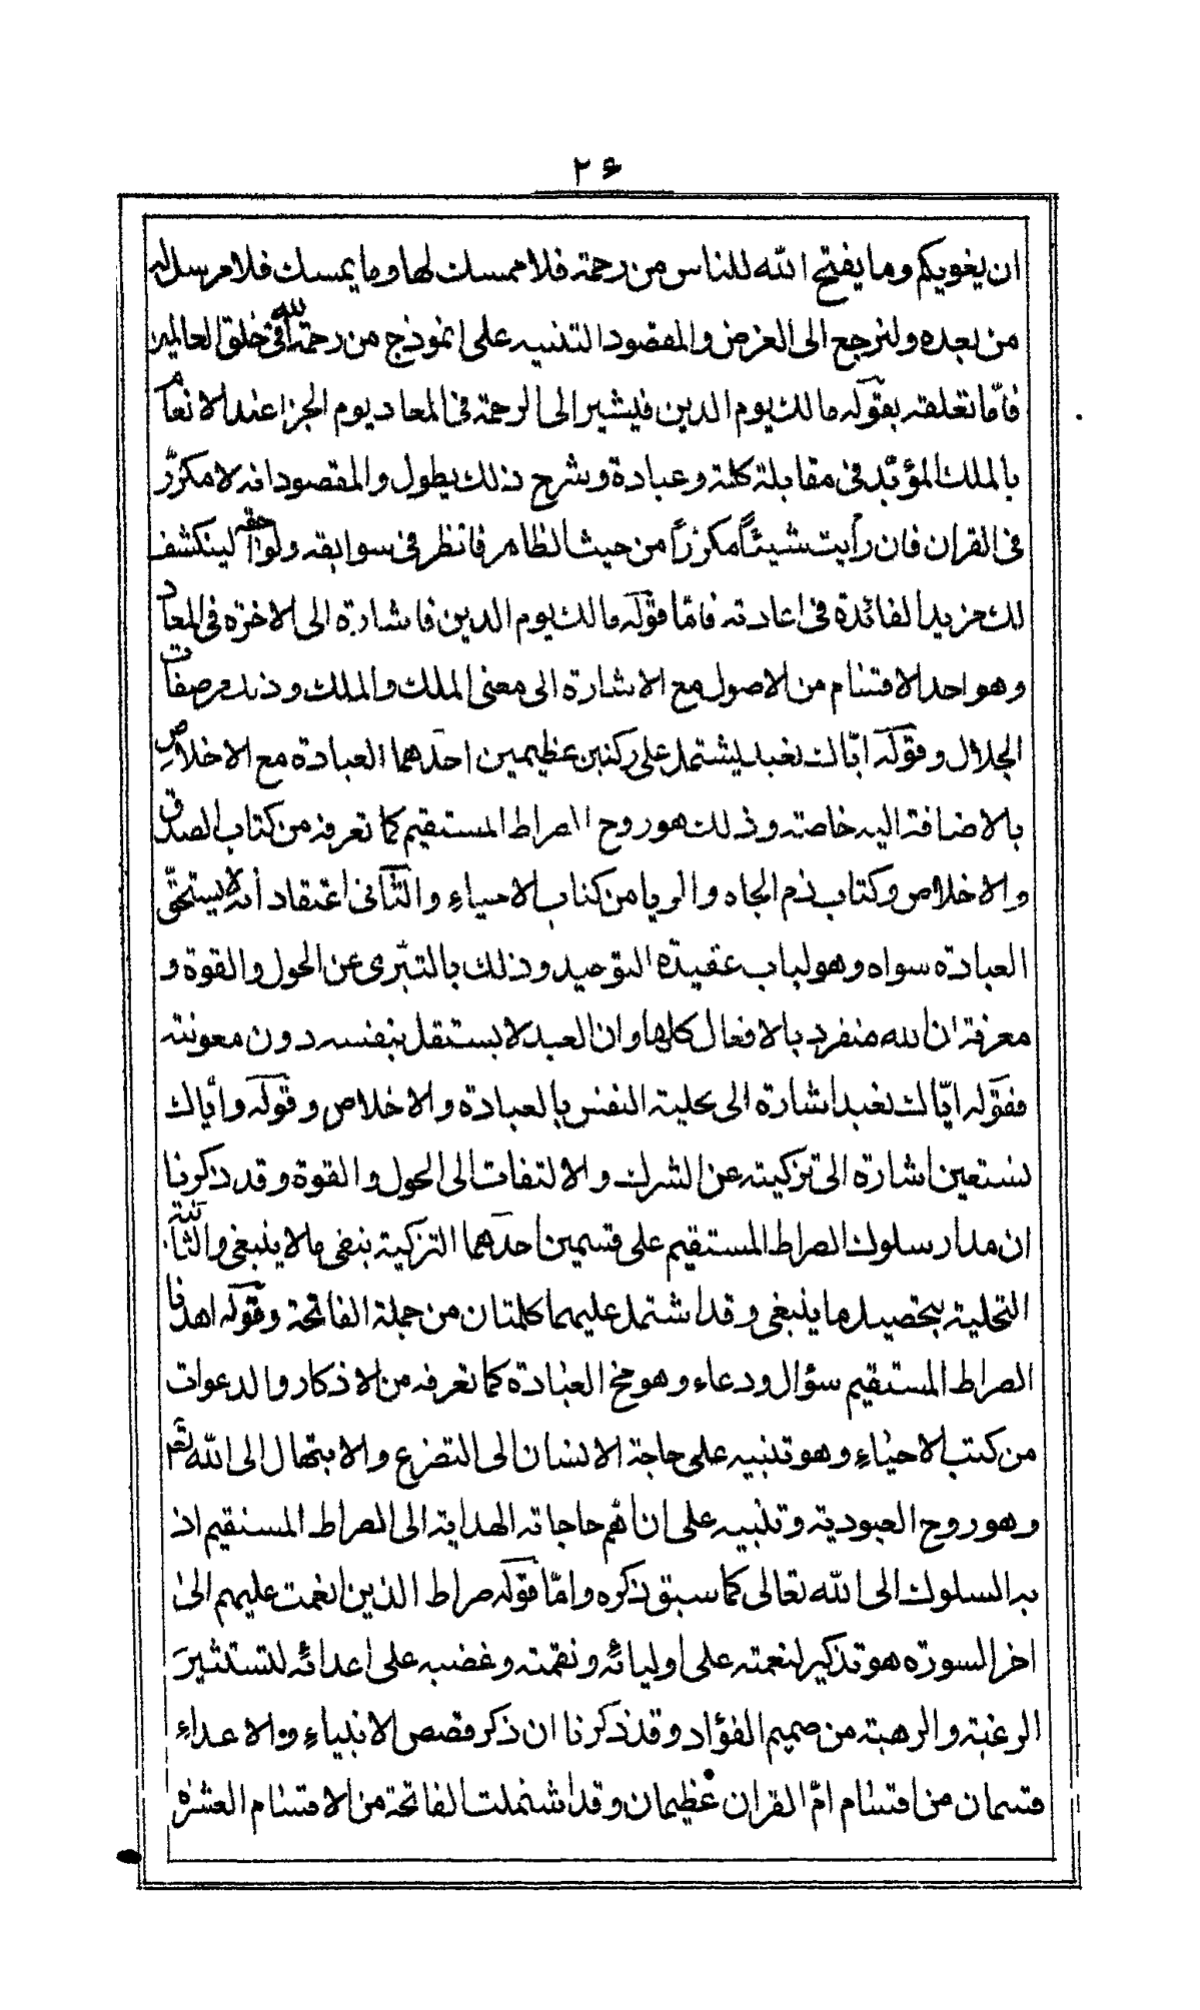 ۲۶
ان يغويكم وما يفتح الله للناس من رحمة فلا ممسك لها وما يمسك فلا مرسل له
من بعده ولنرجع الى الغرض والمقصود التنبيه على انموذج من رحمة الله فى خلق العالمين
فامّا تعلقه بقوله مالك يوم الدين فيشير الى الرحمة فى المعاد يوم الجزا عند الانعام
بالملك المؤبّد فى مقابلة كلمة وعبادة وشرح ذلك يطول والمقصود انه لا مكرّر
فى القران فان رأيت شيئاً مكرّراً من حيث الظاهر فانظر فى سوابقه ولواحقه لينكشف
لك مزيد الفائدة فى اعادته فامّا قوله مالك يوم الدين فاشارة الى الاخرة فى المعاد
وهو احد الاقسام من الاصول مع الاشارة الى معنى الملك والملك وذلك من صفات
الجلال وقوله ايّاك نعبد يشتمل على ركنين عظيمين احدهما العبادة مع الاخلاص
بالاضافة اليه خاصته وذلك هو روح الصراط المستقيم كما تعرفه من كتاب الصدق
والاخلاص وكتاب ذم الجاه والريا من كتاب الاحياء والثّانى اعتقاد أنه لا يستحقّ
العبادة سواه وهو لباب عقيدة التوحيد وذلك بالتبّرى عن الحول والقوة و
معرفة ان الله منفرد بالافعال كلها وان العبد لا يستقل بنفسه دون معونته
فقوله ايّاك نعبد اشارة الى تحلية النفس بالعبادة والاخلاص وقوله وأياك
نستعين اشارة الى تزكيته عن الشرك والالتفات الى الحول والقوة وقد ذكرنا
ان مدار سلوك الصراط المستقيم على قسمين احدهما التزكية بنفى مالا ينبغى والثانية
التحلية بتحصيل ما ينبغى وقد اشتمل عليهما كلمتان من جملة الفاتحة وقوله اهدنا
الصراط المستقيم سؤال ودعاء وهو مخ العبادة كما تعرفه من الاذكار والدعوات
من كتب الاحياء وهو تنبيه على حاجة الانسان الى التضرع والابتهال الى الله تعم
وهو روح العبودية وتنبيه على ان اهم حاجاته الهداية الى الصراط المستقيم اذ
به السلوك الى الله تعالى كما سبق ذكره وامّا قوله صراط الذين انعمت عليهم الى
اخر السورة هو تذكير لنعمته على اوليائه ونقمته وغضبه على اعدائه لتستثير
الرغبة والرهبة من صميم الفؤاد وقد ذكرنا ان ذكر قصص الانبياء والاعداء
قسمان من اقسام امّ القران عظيمان وقد اشتملت الفاتحة من الاقسام العشرة